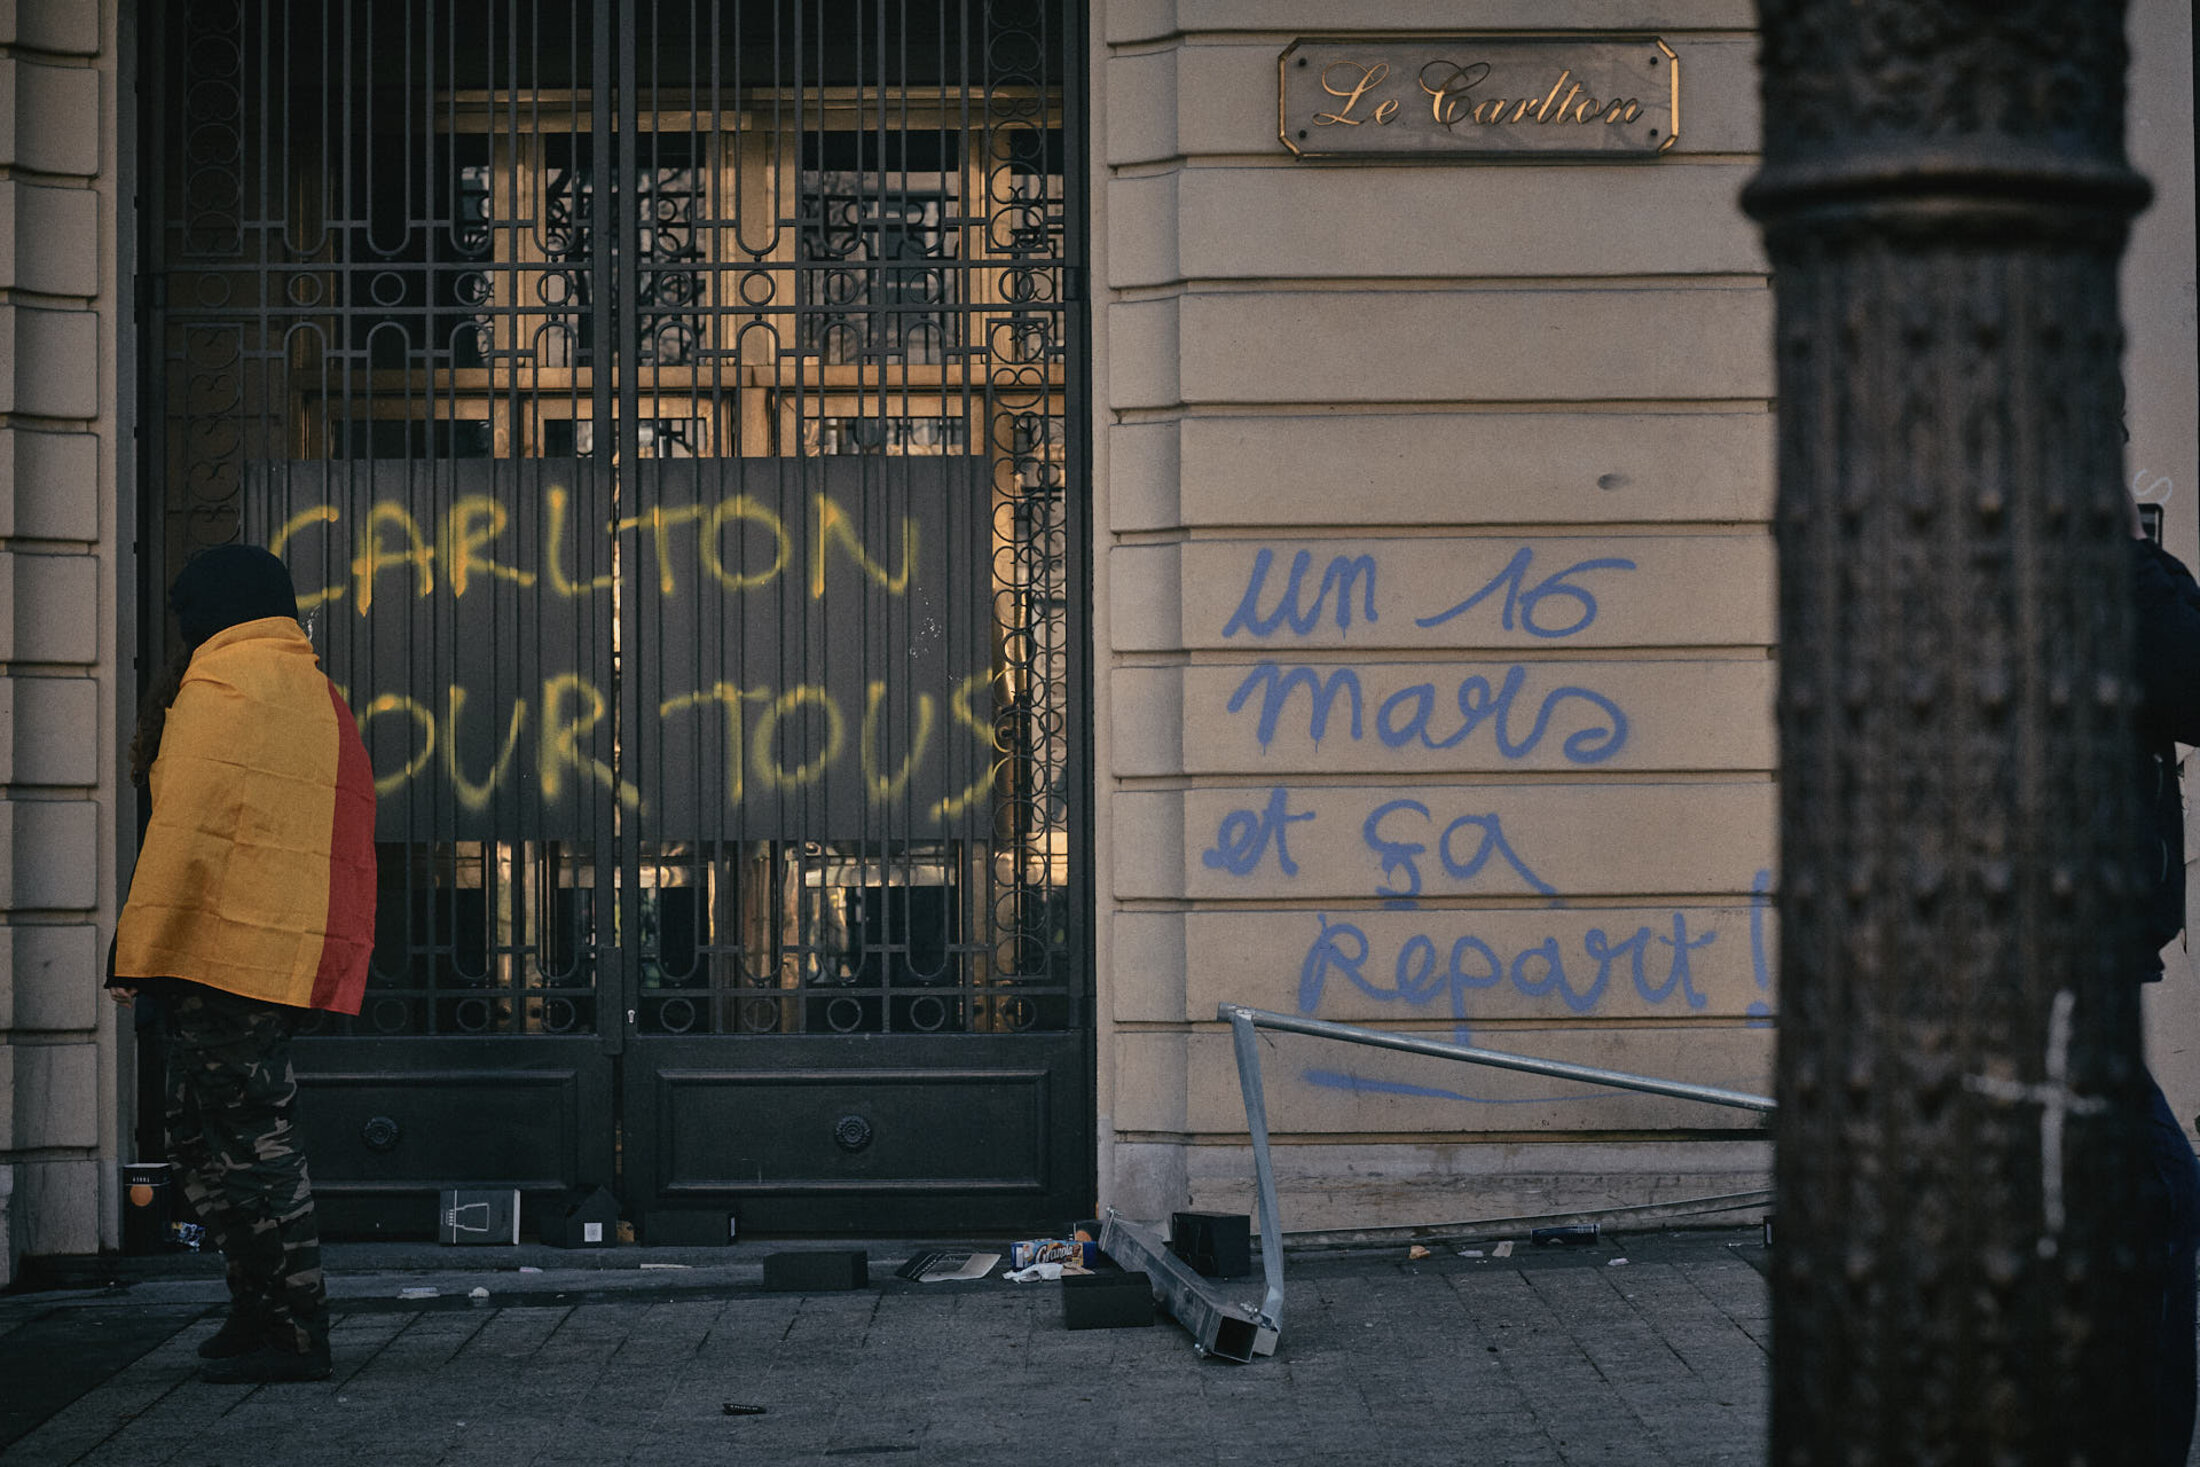 Le Carlton
CARLTON
POUR TOUS
un 16
mars
et ça
Repart !
Granola